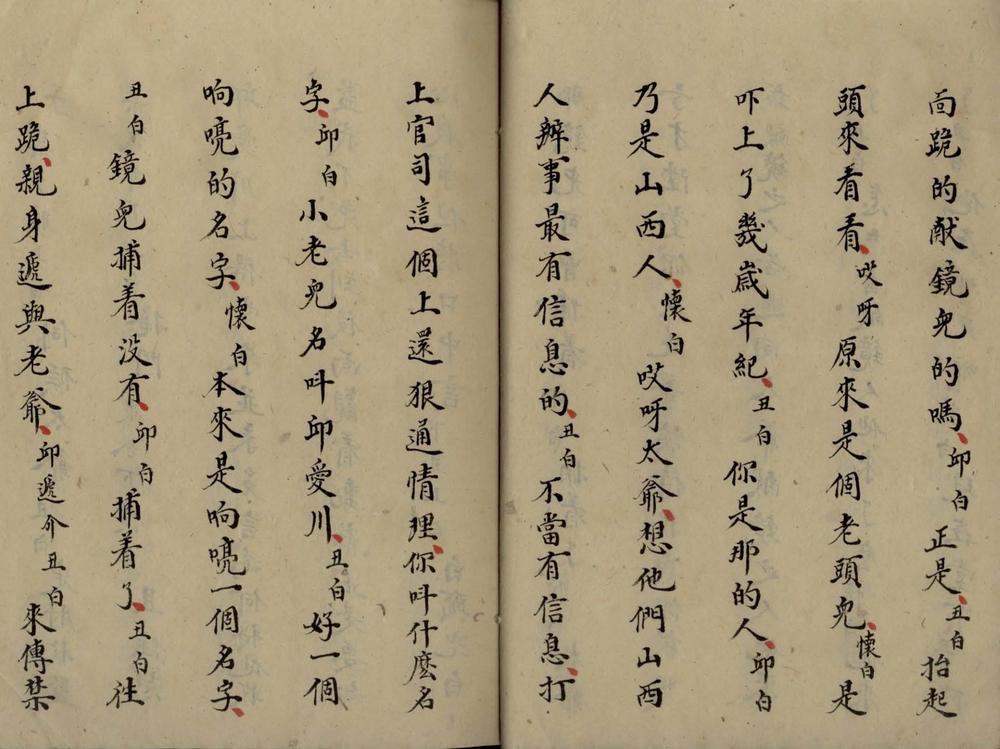 面跪的献鏡兒的嗎、邱白正是、丑白抬起
頭來看看、哎呀原來是個老頭兒、懷白是
吓上了幾歲年紀、丑白你是那的人、邱白
乃是山西人、懷白哎呀太爺、想他們山西
人辦事最有信息的、丑白不當有信息、打
上官司這個上還狠通情理、你呌什麽名
字、邱白小老兒名呌邱愛川、丑白好一個
响喨的名字、懷白本來是响喨一個名字、
丑白鏡兒捕着没有、邱白捕着了、丑白徃
上跪、親身遞與老爺、邱遞介丑白來傳禁